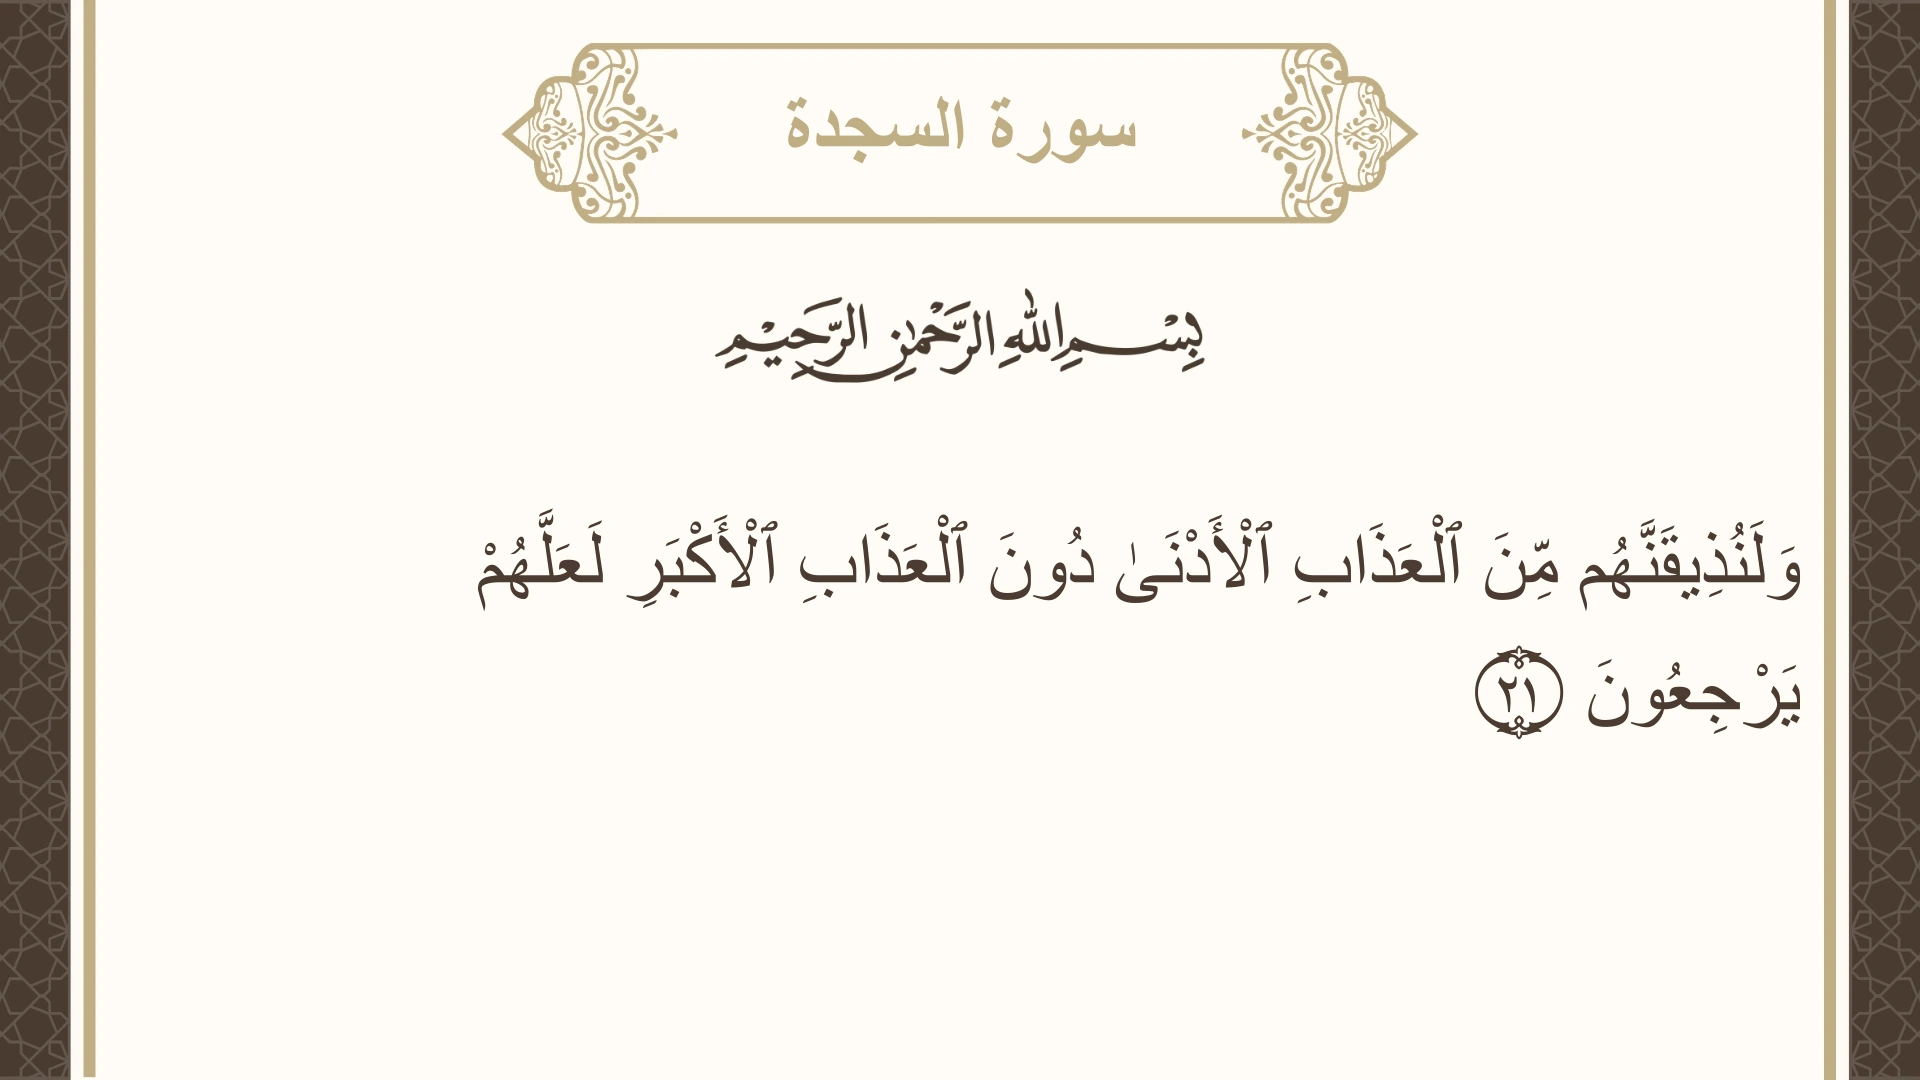 سورة السجدة
بِسْمِ اللهِ الرَّحْمٰنِ الرَّحِيْمِ
وَلَنُذِيقَنَّهُم مِّنَ ٱلْعَذَابِ ٱلْأَدْنَىٰ دُونَ ٱلْعَذَابِ ٱلْأَكْبَرِ لَعَلَّهُمْ
يَرْجِعُونَ ٢١